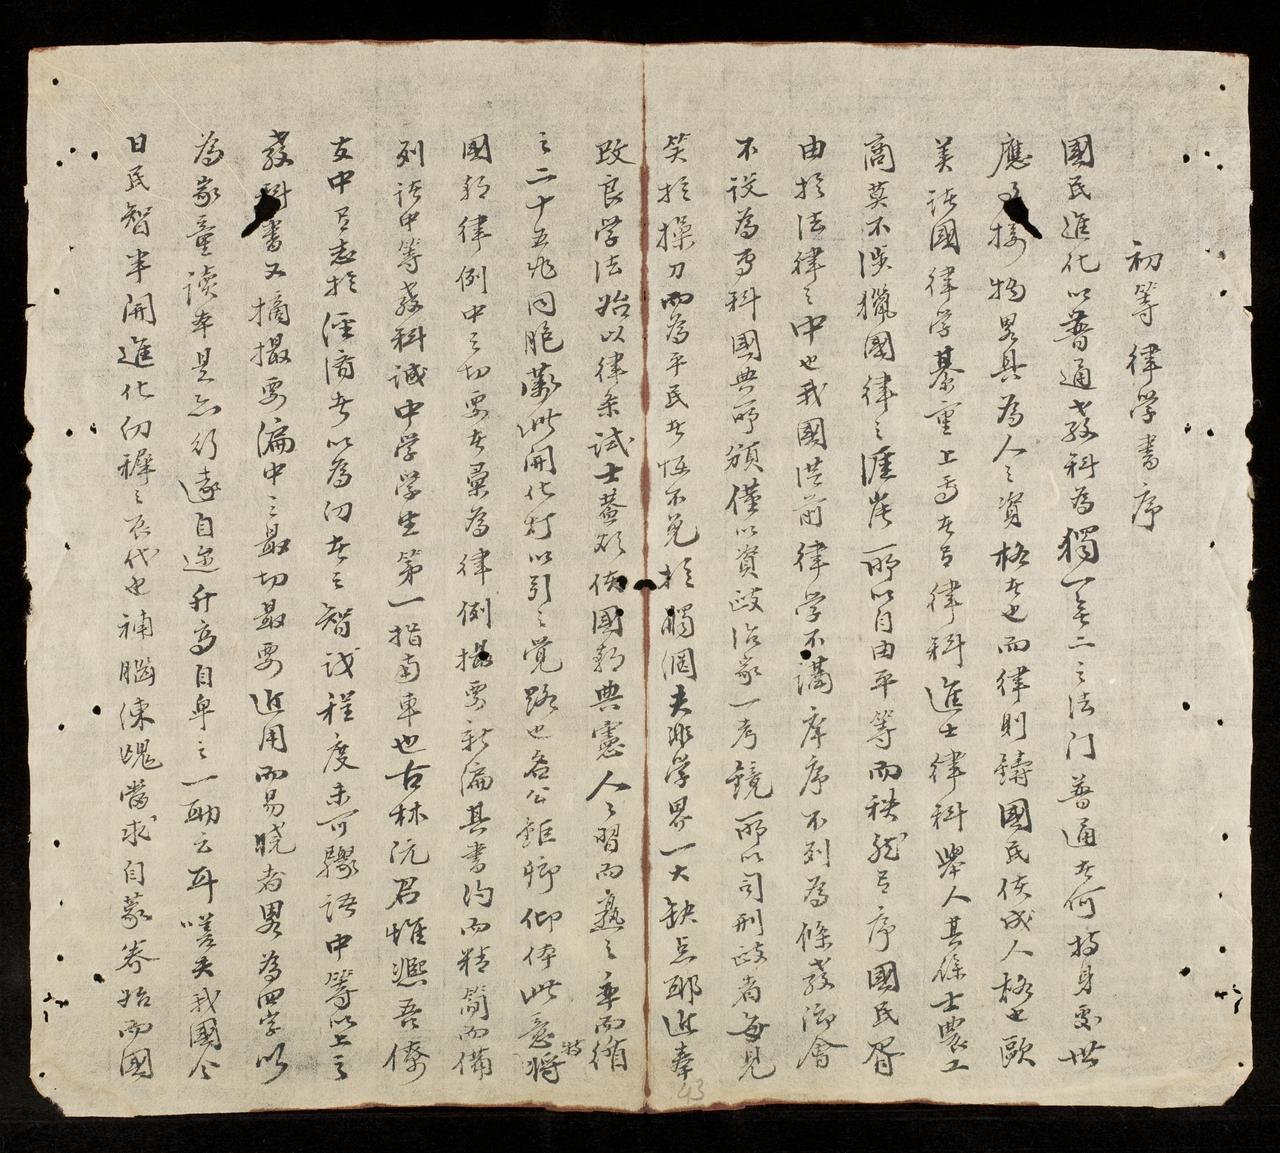 初等律学書序
國民進化以普通教科為獨一无二之法门普通者何持身處世
應事接物畧具為人之資格者也而律則鑄國民使成人格也歐
美諸國律学綦重上焉者有律科進士律科舉人其餘士農工
商莫不涉獵國律之涯涘所以自由平等而秩然有序國民胥
由於法律之中也我國從前律学不講庠序不列為條教鄉會
不設為專科國典所頒僅以資政治家一考鏡所以司刑政者每見
笑於操刀而為平民者恆不免於觸網夫非学界一大缺点耶近奉
改良学法始以律条試士蓋欲使國朝典憲人人習而熟之率而循
之二十五兆同胞藉此開化灯以引之覚路也各公鉅卿仰体此意特将
國朝律例中之切要者彙為律例撮要新編其書约而精簡而備
列諸中等教科誠中学学生第一指南車也古林阮君惟熙吾儕
友中有志於經濟者以為初学之智識程度未可驟語中等以上之
教科書又摘撮要編中之最切最要近用而易曉者畧為四字以
為家童讀本是亦行遠自迩升高自卑之一助云耳嗟夫我國今
日民智半開進化初穉之辰代也補腦涑愧當求自蒙养始而國